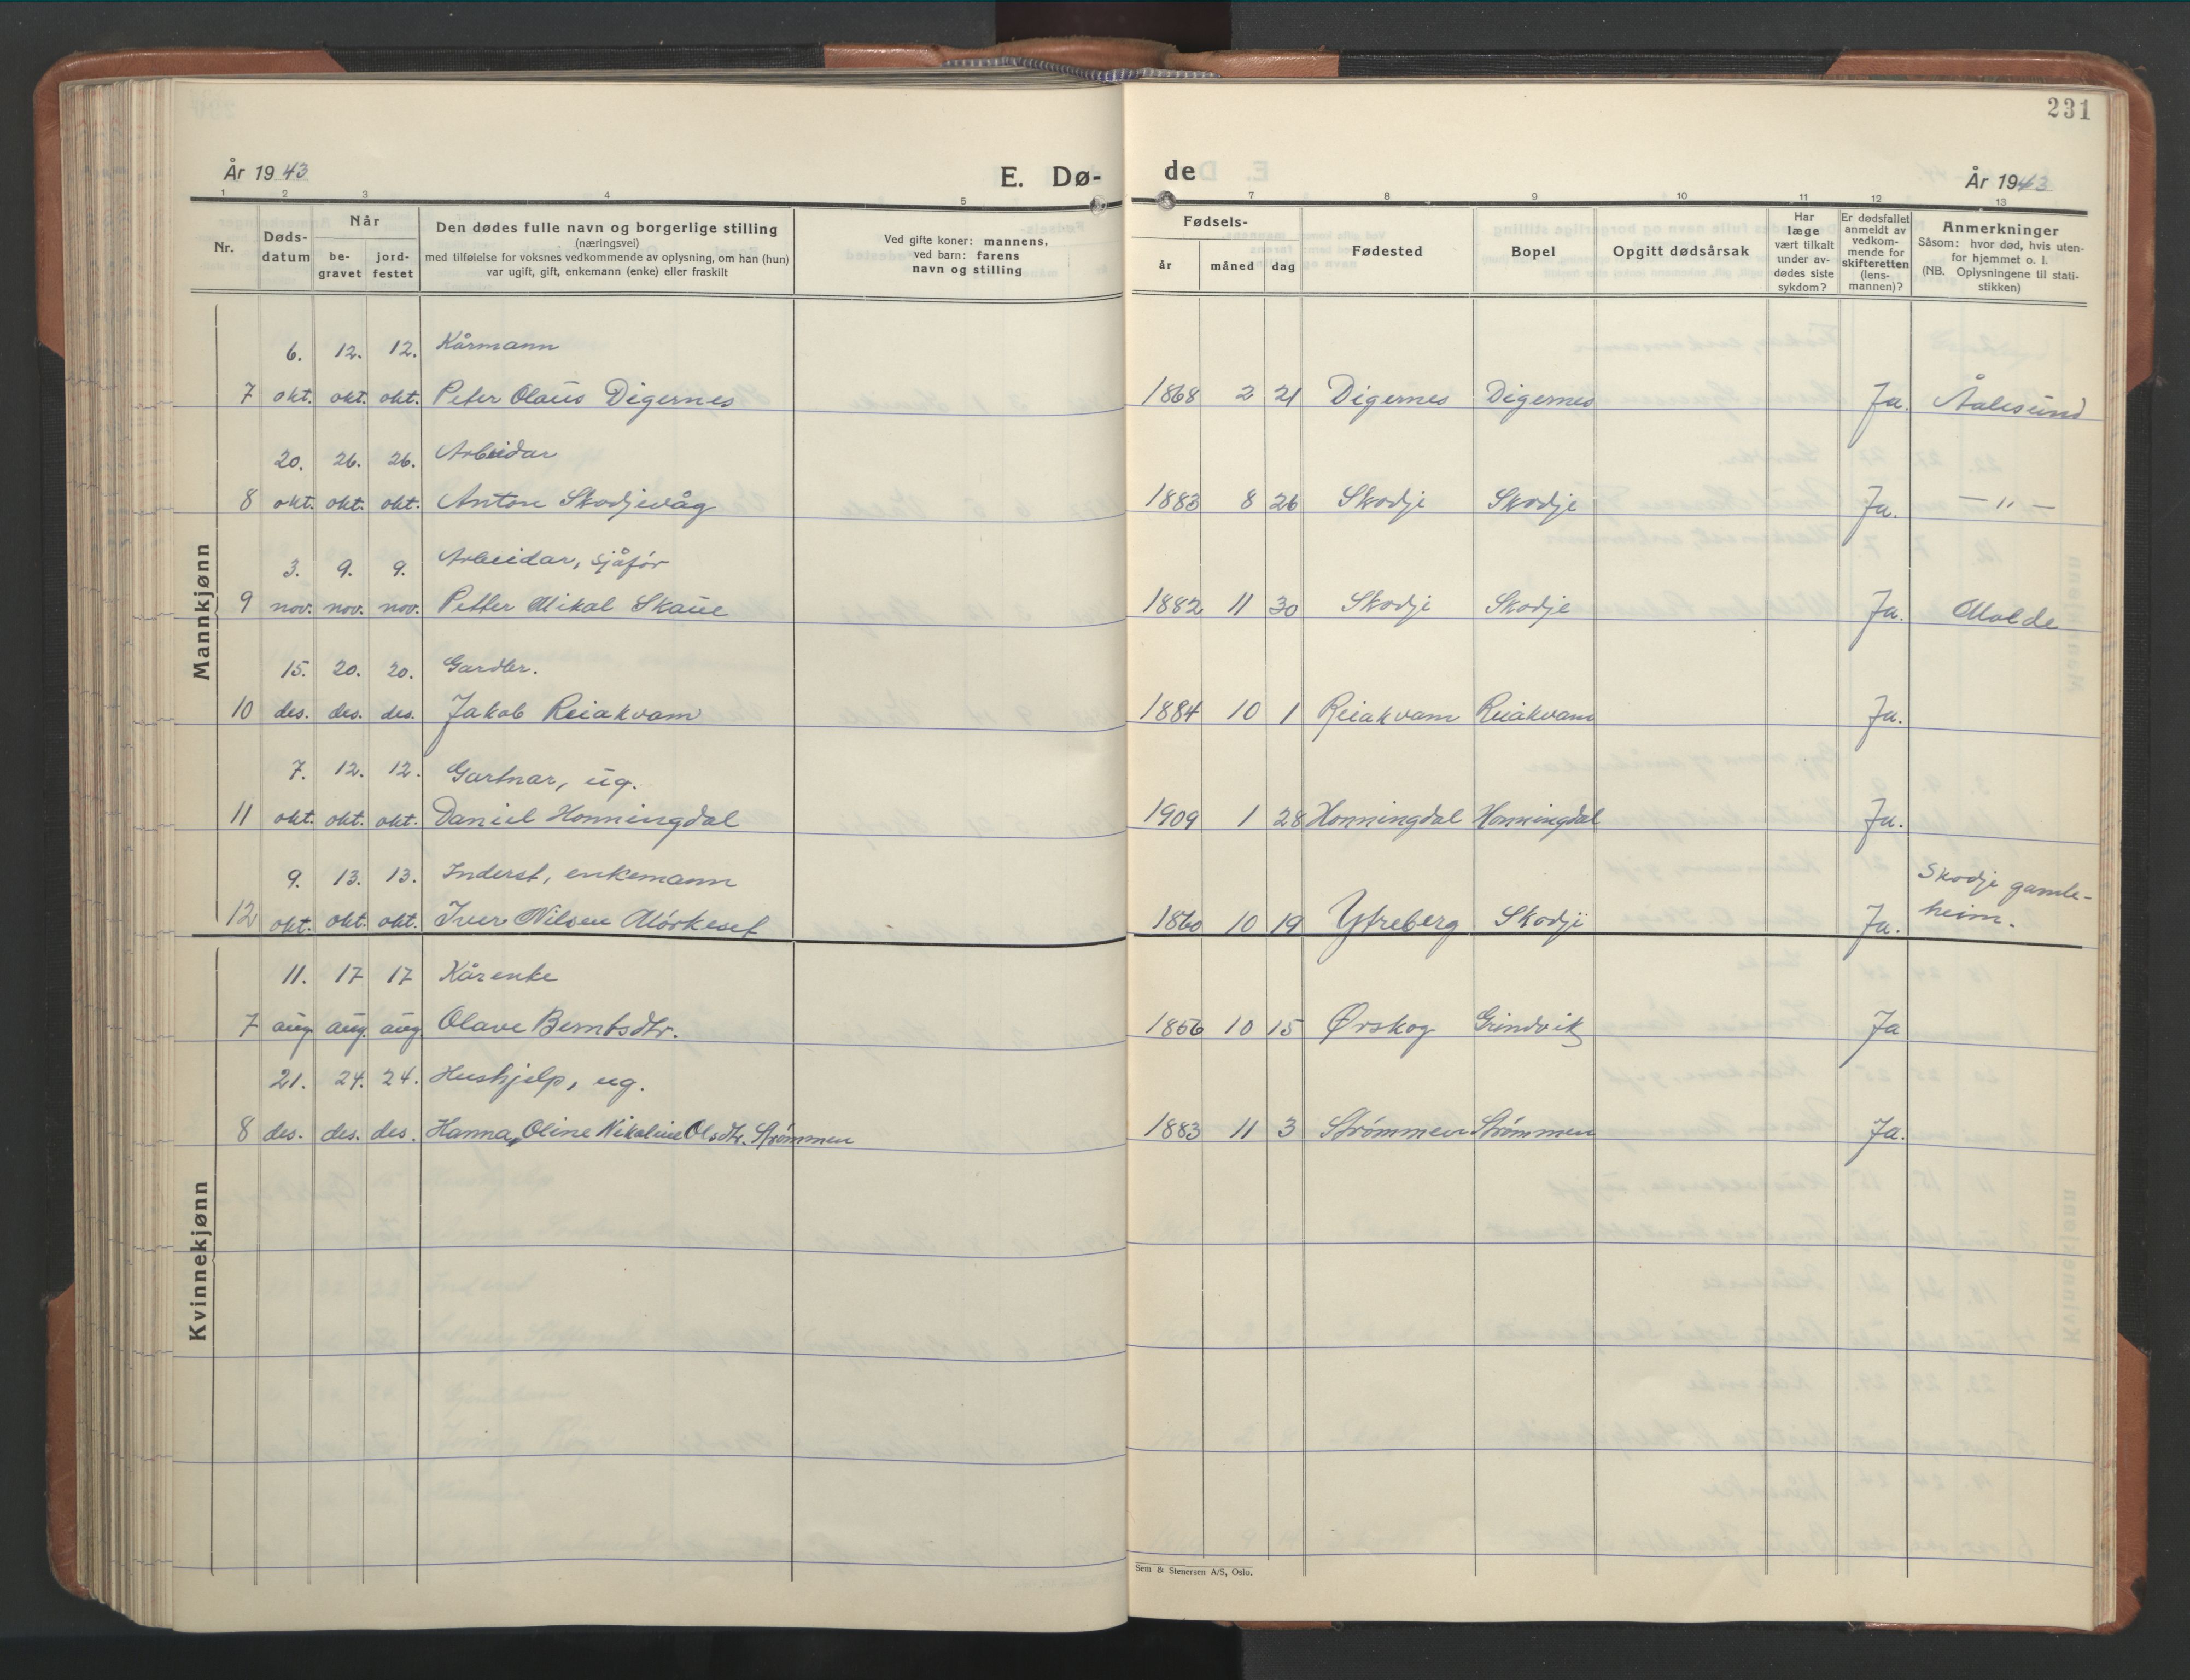 231
År 1943
E. Dø-
de
År 1943
1 2 3 4 5 7 8 9 10 11 12 13
Nr.
Døds-
datum
Når
be-
gravet
jord-
festet
Den dødes fulle navn og borgerlige stilling
(næringsvei)
med tilføielse for voksnes vedkommende av oplysning, om han (hun)
var ugift, gift, enkemann (enke) eller fraskilt
Ved gifte koner: mannens,
ved barn: farens
navn og stilling
Fødsels-
år måned dag
Fødested
Bopel
Opgitt dødsårsak
Har
læge
vært tilkalt
under av-
dødes siste
sykdom?
Er dødsfallet
anmeldt av
vedkom-
mende for
skifteretten
(lens-
mannen)?
Anmerkninger
Såsom: hvor død, hvis uten-
for hjemmet o. l.
(NB. Oplysningene til stati-
stikken)
Mannkjønn
6. 12. 12. Kårmann
7 okt. okt. okt. Peter Olaus Digernes 1868 2 21 Digernes Digernes Ja. Ålesund
20. 26. 26. Arbeidar
8 okt. okt. okt. Anton Skodjevåg 1883 8 26 Skodje Skodje Ja. — " —
3. 9. 9. Arbeidar, sjåfør
9 nov. nov. nov. Petter Mikal Skaue 1882 11 30 Skodje Skodje Ja. Molde
15. 20. 20. Gardbr.
10 des. des. des. Jakob Reiakvam 1884 10 1 Reiakvam Reiakvam Ja.
7. 12. 12. Gartnar, ug.
11 okt. okt. okt. Daniel Honningdal 1909 1 28 Honningdal Honningdal Ja.
9. 13. 13. Inderst, enkemann
Skodje gamle-
12 okt. okt. okt. Iver Nilsen Mørkeset 1860 10 19 Ytreberg Skodje Ja. heim.
Kvinnekjønn
11. 17 17 Kårenke
7 aug. aug. aug. Olave Berntsdtr. 1856 10 15 Ørskog Grindvik Ja
21. 24. 24. Hushjelp, ug.
8 des. des. des. Hanna Oline Nikoline Olsdtr. Strømmen 1883 11 3 Strømmen Strømmen Ja.
Sem & Stenersen A/S, Oslo.